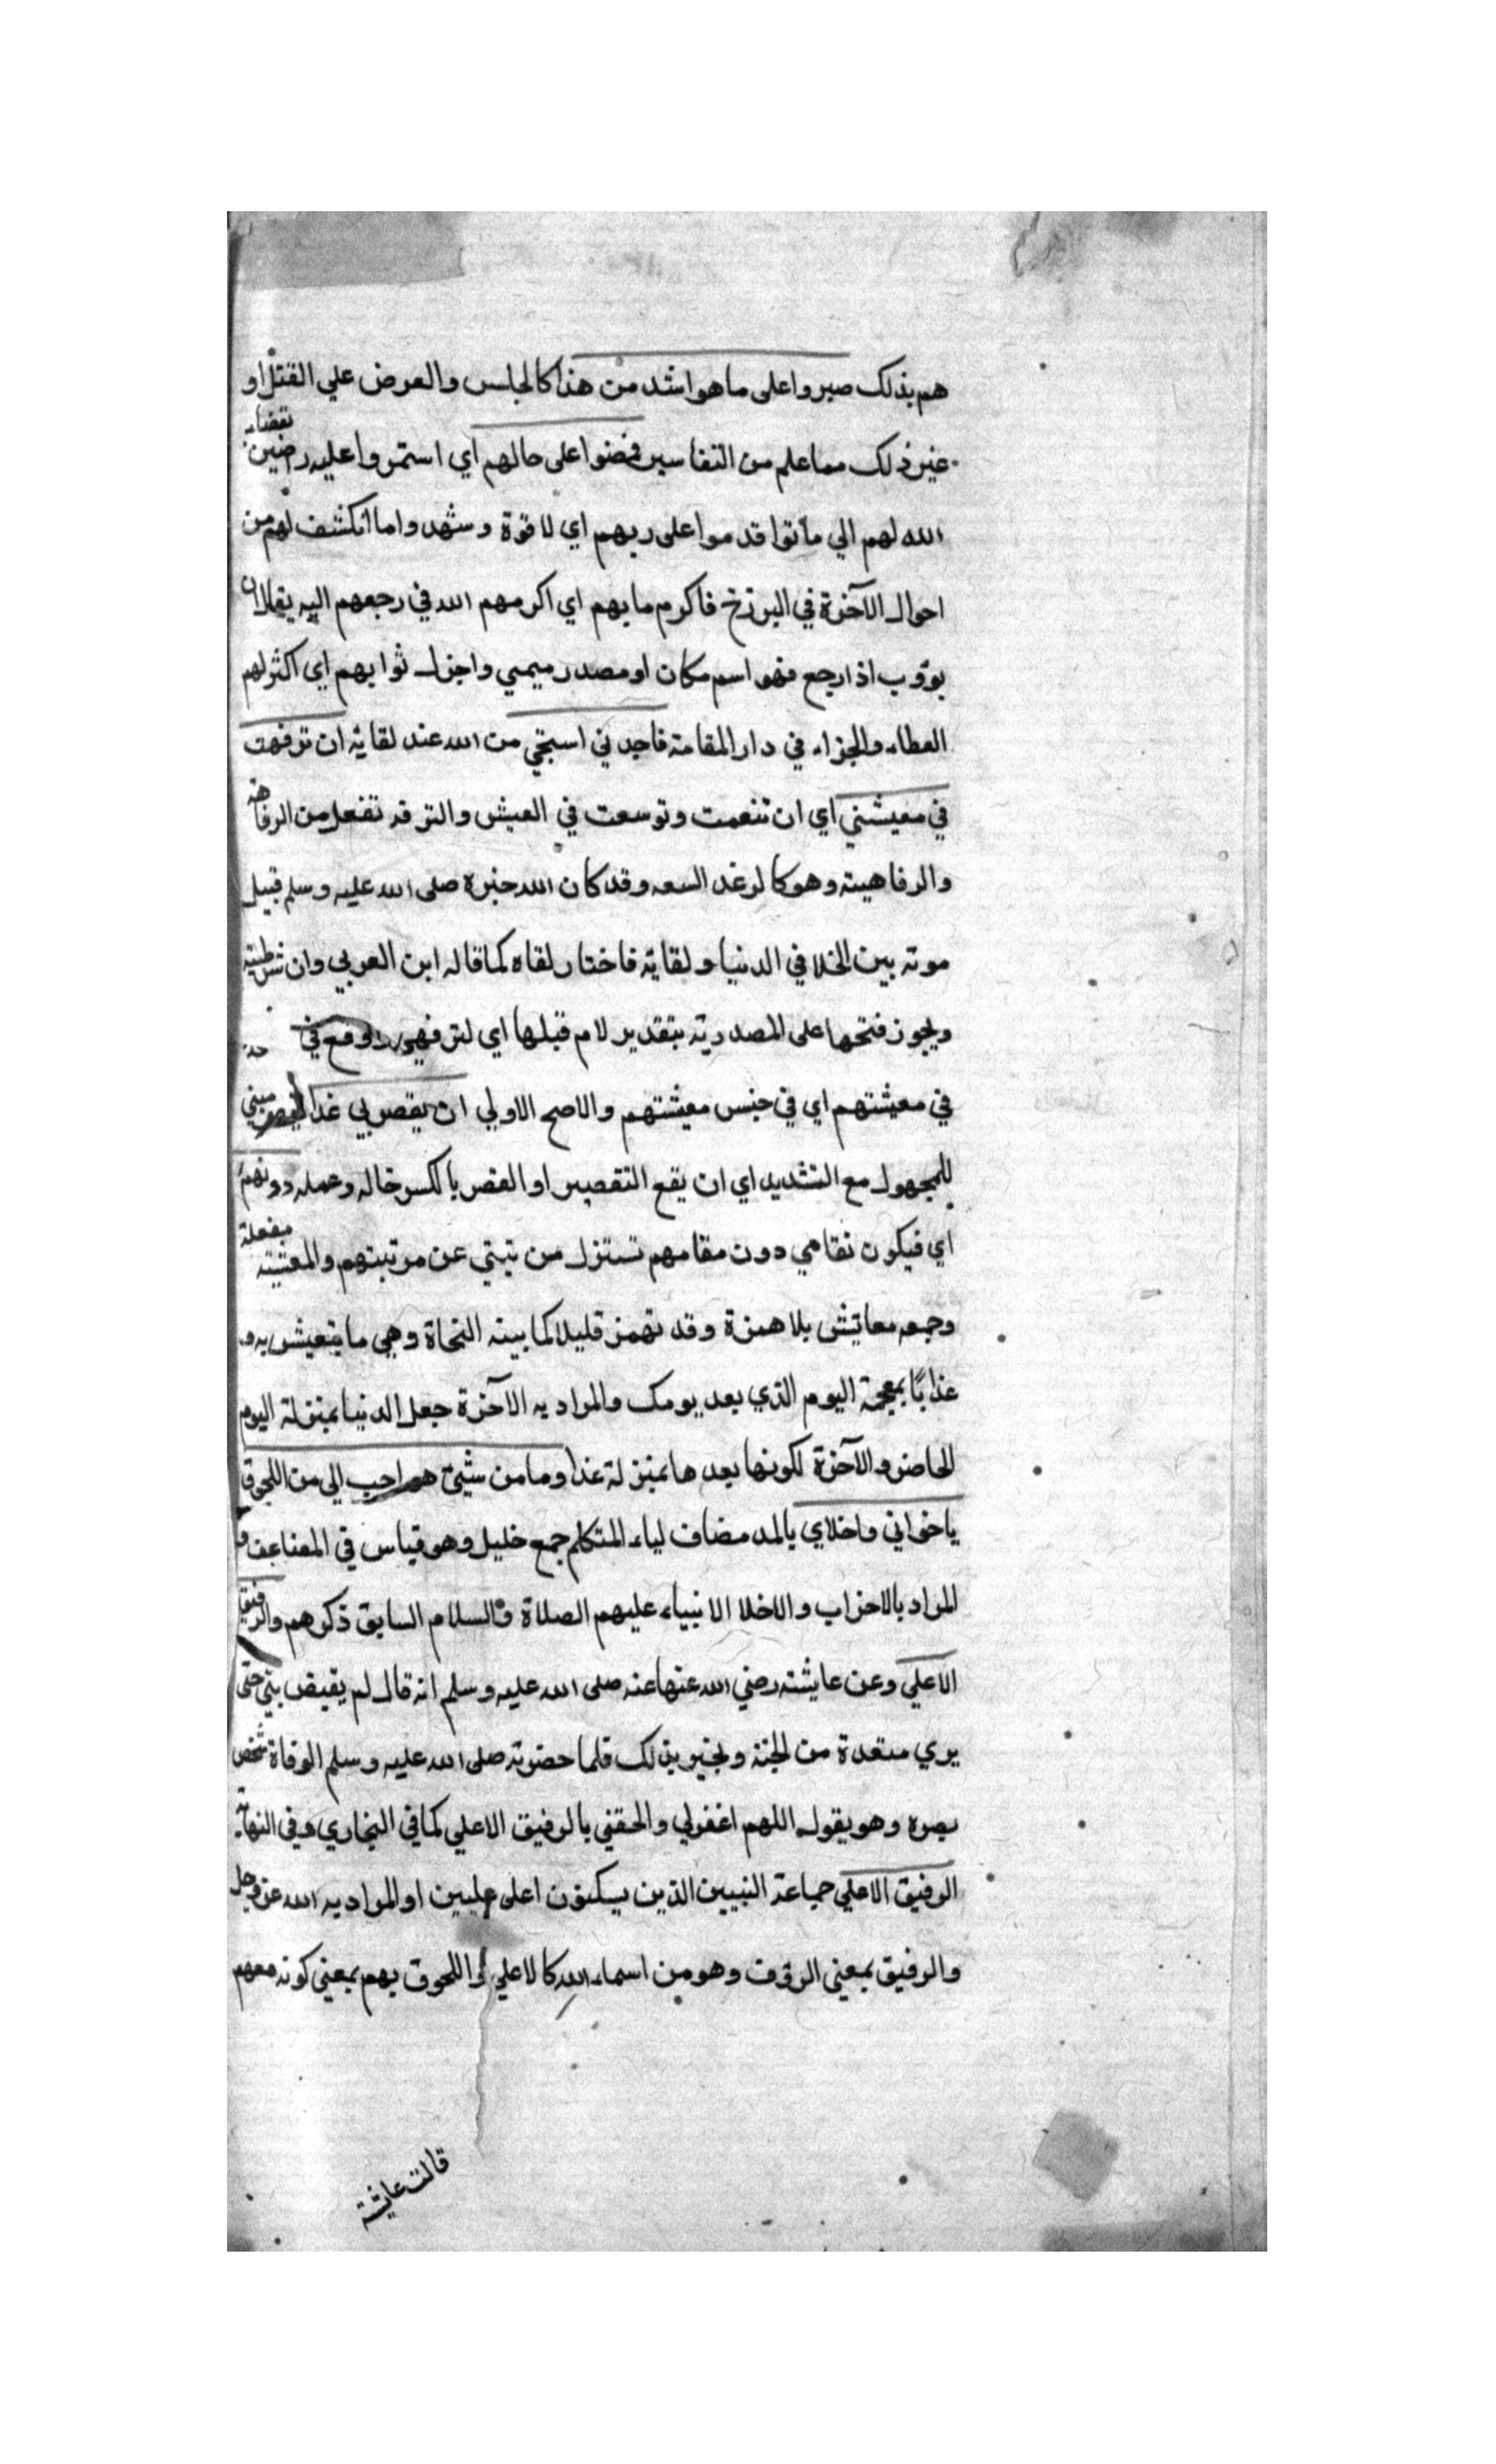 هم بذلك صبروا على ما هو اشد من هذا كالجلس والعرض علي القتل او
غير ذلك مما علم من التفاسير فمضوا على حالهم اي استمروا عليه رضين بقضاء
الله لهم الي ماتوا قدموا على ربهم اي لاقوة وشهدوا ما انكشف لهم من
احوال الآخرة في البرزخ فاكرم مابهم اي اكرمهم الله في رجعهم اليه يقال ان
يوؤب اذا رجع فهو اسم مكان او مصدر ميمي واجزل ثوابهم اي اكثر لهم
العطاء والجزاء في دار المقامة فاجدني استحي من الله عند لقايه ان ترفهت
في معيشتي اي ان تنعمت وتوسعت في العيش والترفه تفعل من الرفاهة
والرفاهيته وهو كالرغد السعه وقد كان الله خيره صلى الله عليه وسلم قبيل
موته بين الخلد في الدنيا ولقايه فاختار لقاه كما قاله ابن العربي وان شرطية
ويجوز فتحها على المصدرية بتقدير لام قبلها اي لترفهي ووقع في
في معيشتهم اي في جنس معيشتهم والاصح الاولي ان يقصر بي غدا مبني
للمجهول مع التشديد اي ان يقع التقصير او القصر بالكسر خاله وعمله دونهم
اي فيكون نقامي دون مقامهم تستنزل من تبتي عن مرتبتهم والمعيشة مفعلة
وجمعه معائش بلا همزة وقد تهمز قليلا كما بينه النحاة وهي ما يتعيش به و
غذا بمعجمة اليوم الذي بعد يومك والمراد به الآخرة جعل الدنيا بمنزلة اليوم
الحاضر والآخرة لكونها بعدها بمنزلة غدا وما من شيئ هو احب الي من اللحوق
ياخواني واخلاي بالمد مضاف لياء المتكلم جمع خليل وهو قياس في المضاعف و
المراد بالاحزاب والاخلا الانبياء عليهم الصلاة والسلام السابق ذكرهم والرفيق
الاعلي وعن عايشة رضي الله عنها عنه صلى الله عليه وسلم انه قال لم يقبض نبي حتى
يري مقعدة من الجنة ويخير بذلك فلما حضرته صلى الله عليه وسلم الوفاة شخص
بصره وهو يقول اللهم اغفرلي والحقني بالرفيق الاعلي كما في البخاري وفي النهاية
الرفيق الاعلي جماعة النبيين الذين يسكنون اعلى عليين او المراد به الله عز وجل
والرفيق بمعني الرؤف وهو من اسماء الله كالاعلي واللحوق بهم بمعني كونه معهم
قالت عايشة